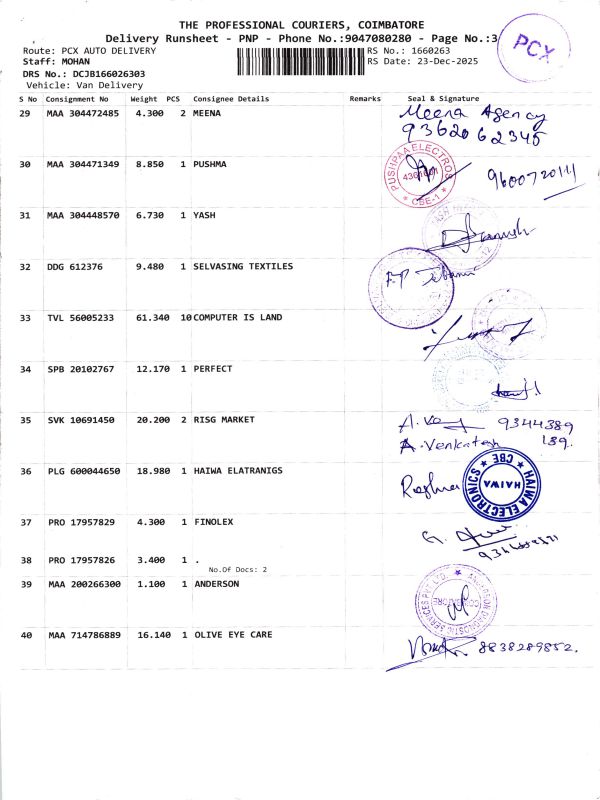 THE PROFESSIONAL COURIERS, COIMBATORE
Delivery Runsheet - PNP - Phone No.:9047080280 - Page No.:3
PCX
Route: PCX AUTO DELIVERY
RS No.: 1660263
Staff: MOHAN
RS Date: 23-Dec-2025
DRS No.: DCJB166026303
Vehicle: Van Delivery
S No Consignment No Weight PCS Consignee Details Remarks Seal & Signature
29 MAA 304472485 4.300 2 MEENA Meena Agency
9362062345
30 MAA 304471349 8.850 1 PUSHMA PUSHPAA ELECTROS CBE-1 9600720111
31 MAA 304448570 6.730 1 YASH
32 DDG 612376 9.480 1 SELVASING TEXTILES
33 TVL 56005233 61.340 10 COMPUTER IS LAND
34 SPB 20102767 12.170 1 PERFECT
35 SVK 10691450 20.200 2 RISG MARKET 9344389
A. Venkatesh 139.
36 PLG 600044650 18.980 1 HAIWA ELATRANIGS HAIWA ELECTRONICS CBE HAIWA
37 PRO 17957829 4.300 1 FINOLEX
38 PRO 17957826 3.400 1 .
No.Of Docs: 2
39 MAA 200266300 1.100 1 ANDERSON
40 MAA 714786889 16.140 1 OLIVE EYE CARE 8838289852.